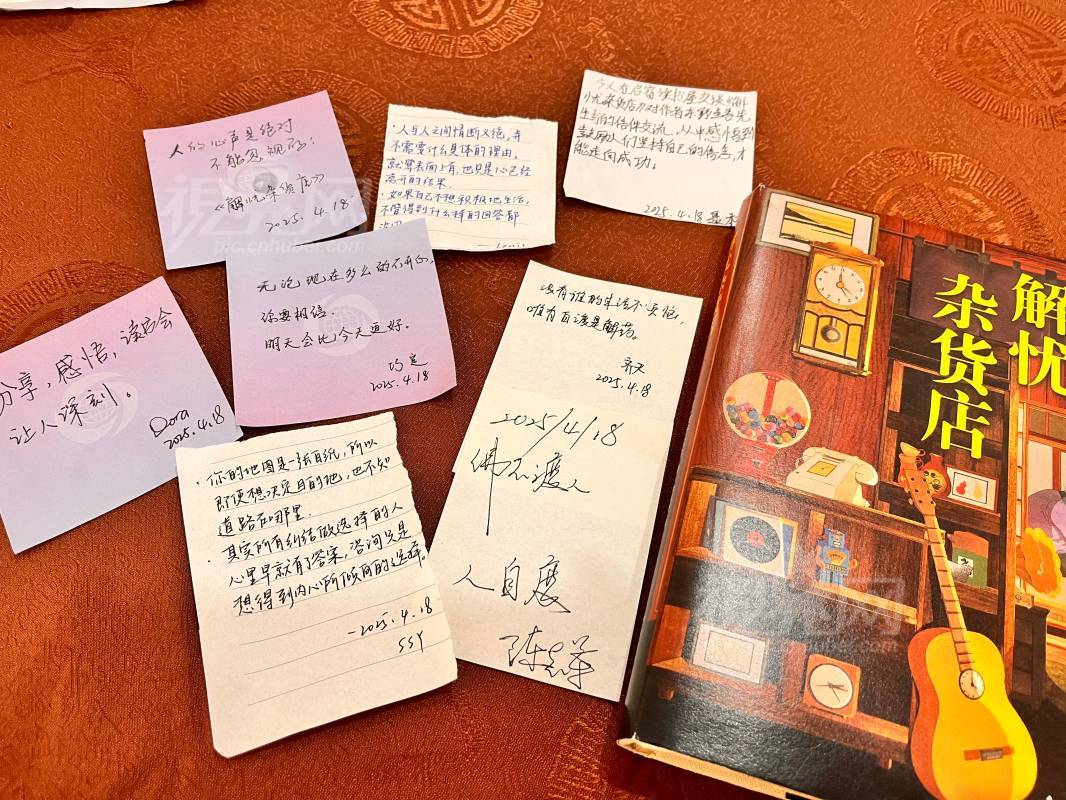 人的心声是绝对
不能忽视的！
《解忧杂货店》
2025.4.18
·人与人之间情断义绝，并
不需要什么具体的理由。
就算表面上有，也只是心已经
离开的结果
·如果自己不想积极地生活，
不管得到什么样的回答都
— Louis
今天在启富读书屋交谈《解
忧杂货店》对作者东野圭吾先
生写的信件交流，从中感悟到
鼓励人们坚持自己的信念，才
能走向成功。
2025.4.18
无论现在多么的不开心，
你要相信，
明天会比今天更好。
2025.4.18
分享，感悟，读后会
让人深刻。
Dora
2025.4.18
没有谁的生活不失怕，
唯有自渡是解药。
2025.4.18
2025/4/18
佛不渡人
人自度
·你的地图是一张白纸，所以
即使想决定目的地，也不知
道路在哪里.
·其实所有纠结做选择的人
心里早就有了答案，咨询只是
想得到内心所倾向的选择。
-2025.4.18
SSY
解忧
杂货店
视界网
pic.cnhubei.com